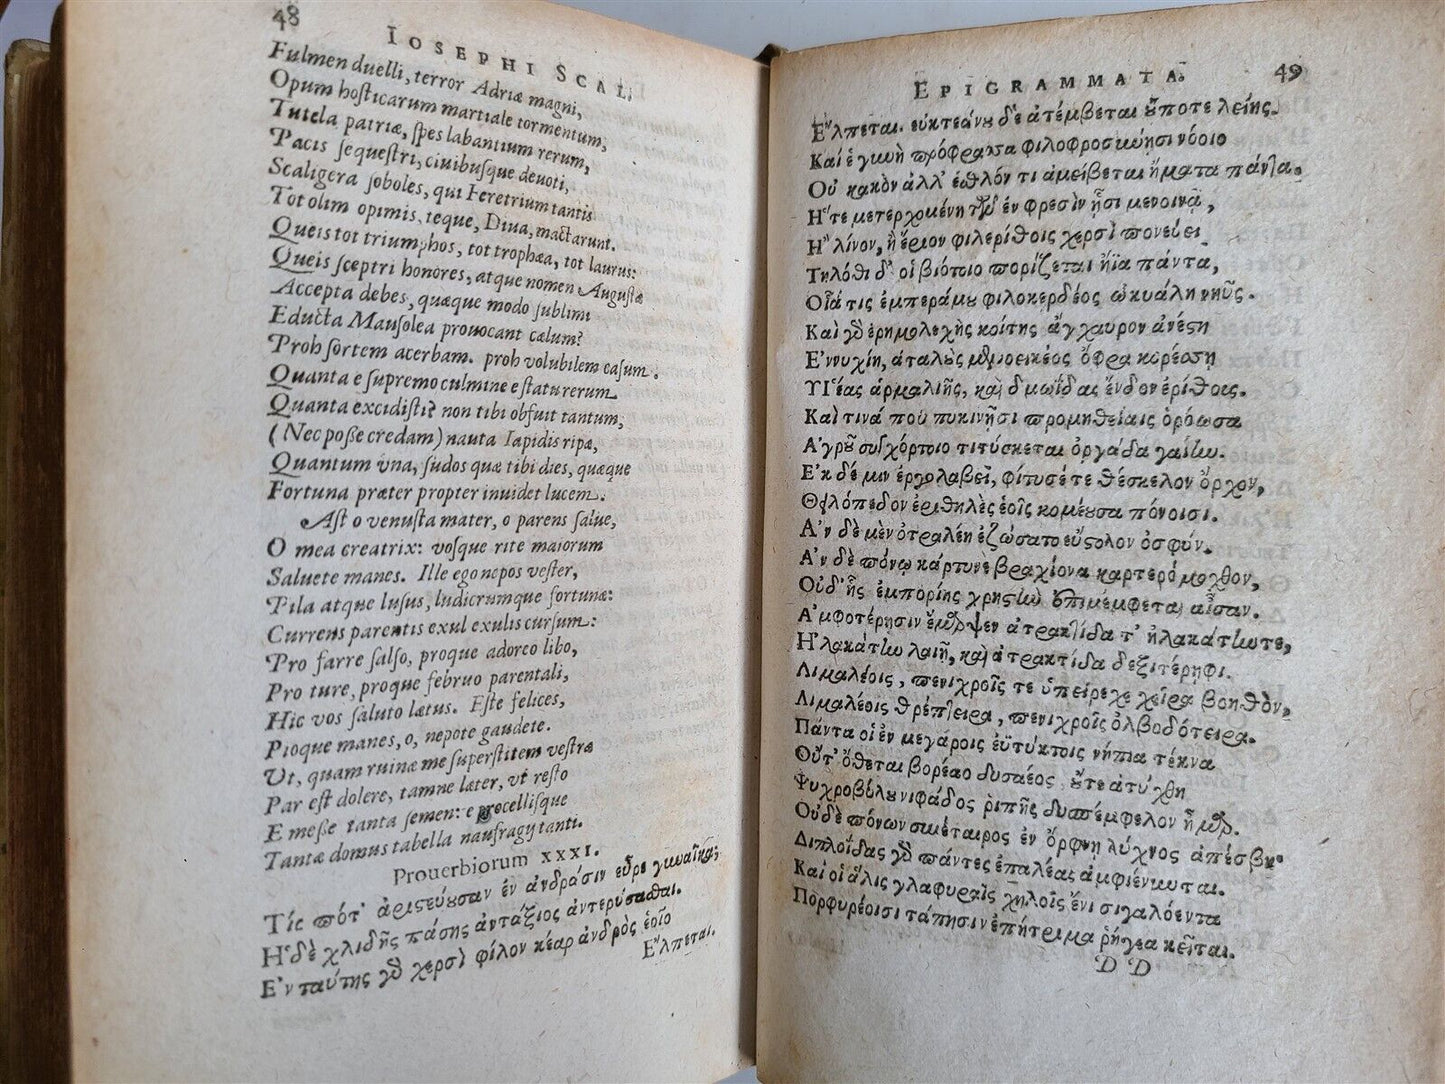 48
IOSEPHI SCAL.
Fulmen duelli, terror Adriæ magni,
Opum hosticarum martiale tormentum,
Tutela patriæ, spes labantium rerum,
Pacis sequestri, ciuibusque deuoti,
Scaligera soboles, qui Feretrium tantis
Tot olim opimis, teque, Diua, mactarunt.
Queis tot triumphos, tot trophæa, tot laurus:
Queis sceptri honores, atque nomen Augustæ
Accepta debes, quæque modo sublimi
Educta Mausolea prouocant cælum?
Proh sortem acerbam. proh volubilem casum.
Quanta e supremo culmine e statu rerum
Quanta excidisti? non tibi obfuit tantum,
(Nec posse credam) nauta Iapidis ripæ,
Quantum vna, sudos quæ tibi dies, quæque
Fortuna præter propter inuidet lucem.
Ast o venusta mater, o parens salue,
O mea creatrix: vosque rite maiorum
Saluete manes. Ille ego nepos vester,
Pila atque lusus, ludicrumque fortunæ:
Currens parentis exul exulis cursum:
Pro farre salso, proque adoreo libo,
Pro ture, proque februo parentali,
Hic vos saluto lætus. Este felices,
Pioque manes, o, nepote gaudete.
Vt, quam ruinæ me superstitem vestræ
Par est dolere, tam ne læter, vt resto
E messe tanta semen: e procellisque
Tantæ domus tabella naufragij tanti.
Prouerbiorum XXXI.
Τίς πότ' ἀριστεύουσαν ἐν ἀνδράσιν εὗρε γυναῖκα;
Ἡ δὲ χλιδῆς πάσης ἀντάξιος ἀντερύσασθαι.
Ἐν ταύτης γὸ χερσὶ φίλον κέαρ ἀνδρὸς ἑοῖο
Ἔλπεται.
EPIGRAMMATA. 49
Ἔλπεται. εὐκτεάνου δὲ ἀτέμβεται οὔποτε λείης.
Καί ἑ γυνὴ πρόφρασσα φιλοφροσύνῃσι νόοιο
Οὐ κακὸν ἀλλ' ἐσθλόν τι ἀμείβεται ἤματα πάντα.
Ἥτε μετερχομένη τῷ ἐν φρεσὶν ᾗσι μενοινᾷ,
Ἢ λίνον, ἢ ἔριον φιλερίθοις χερσὶ πονεύει
Τηλόθι δ' οἱ βιότοιο πορίζεται ἤϊα πάντα,
Οἷά τις ἐμπεράμου φιλοκερδέος ὠκυάλη νηῦς.
Καὶ γὸ ἐρημολεχὴς κοίτης ἄγχαυρον ἀνέστη
Ἐννυχίη, ἀταλοὺς μενοεικέος ὄφρα κορέσση
Υἱέας ἁρμαλιῆς, καὶ δμωΐδας ἔνδον ἐρίθοις.
Καὶ τινά που πυκινῇσι προμηθείαις ὁρόωσα
Ἀγροῦ εὐχόρτοιο τιτύσκεται ὀργάδα γαίην.
Ἐκ δέ μιν ἐργολαβεῖ, φίτυσέ τε θέσκελον ὄρχον,
Θειλόπεδον ἐριθηλὲς ἑοῖς κομέουσα πόνοισι.
Ἂν δὲ μὲν ὀτραλέη ἐζώσατο εὔστολον ὀσφύν.
Ἂν δὲ πόνῳ κάρτυνε βραχίονα καρτερόμοχθον,
Οὐδ' ἧς ἐμπορίης χρηστὴν ἐπιμέμφεται αἶσαν.
Ἀμφοτέρησιν ἔμαρψεν ἀτρακτίδα τ' ἠλακάτην τε,
Ἠλακάτην λαιῇ, καὶ ἀτρακτίδα δεξιτέρηφι.
Λιμαλέοις, πενιχροῖς τε ὑπείρεχε χεῖρα βοηθὸν,
Λιμαλέοις θρέπτειρα, πενιχροῖς ὀλβοδότειρα.
Πάντα οἱ ἐν μεγάροις ἐϋτύκτοις νήπια τέκνα
Οὔτ' ὄθεται βορέαο δυσαέος, οὔτε ἀτύχθη
Ψυχροβόλου νιφάδος ῥιπῆς δυσπέμφελον ἦμαρ.
Οὐδὲ πόνων συνέταιρος ἐν ὄρφνῃ λύχνος ἀπέσβη.
Διπλοΐδας γὸ πάντες ἐπαλέας ἀμφιέννυται.
Καί οἱ ἅλις γλαφυραῖς χηλοῖς ἔνι σιγαλόεντα
Πορφυρέοισι τάπησιν ἐπήτριμα ῥήγεα κεῖται.
D D